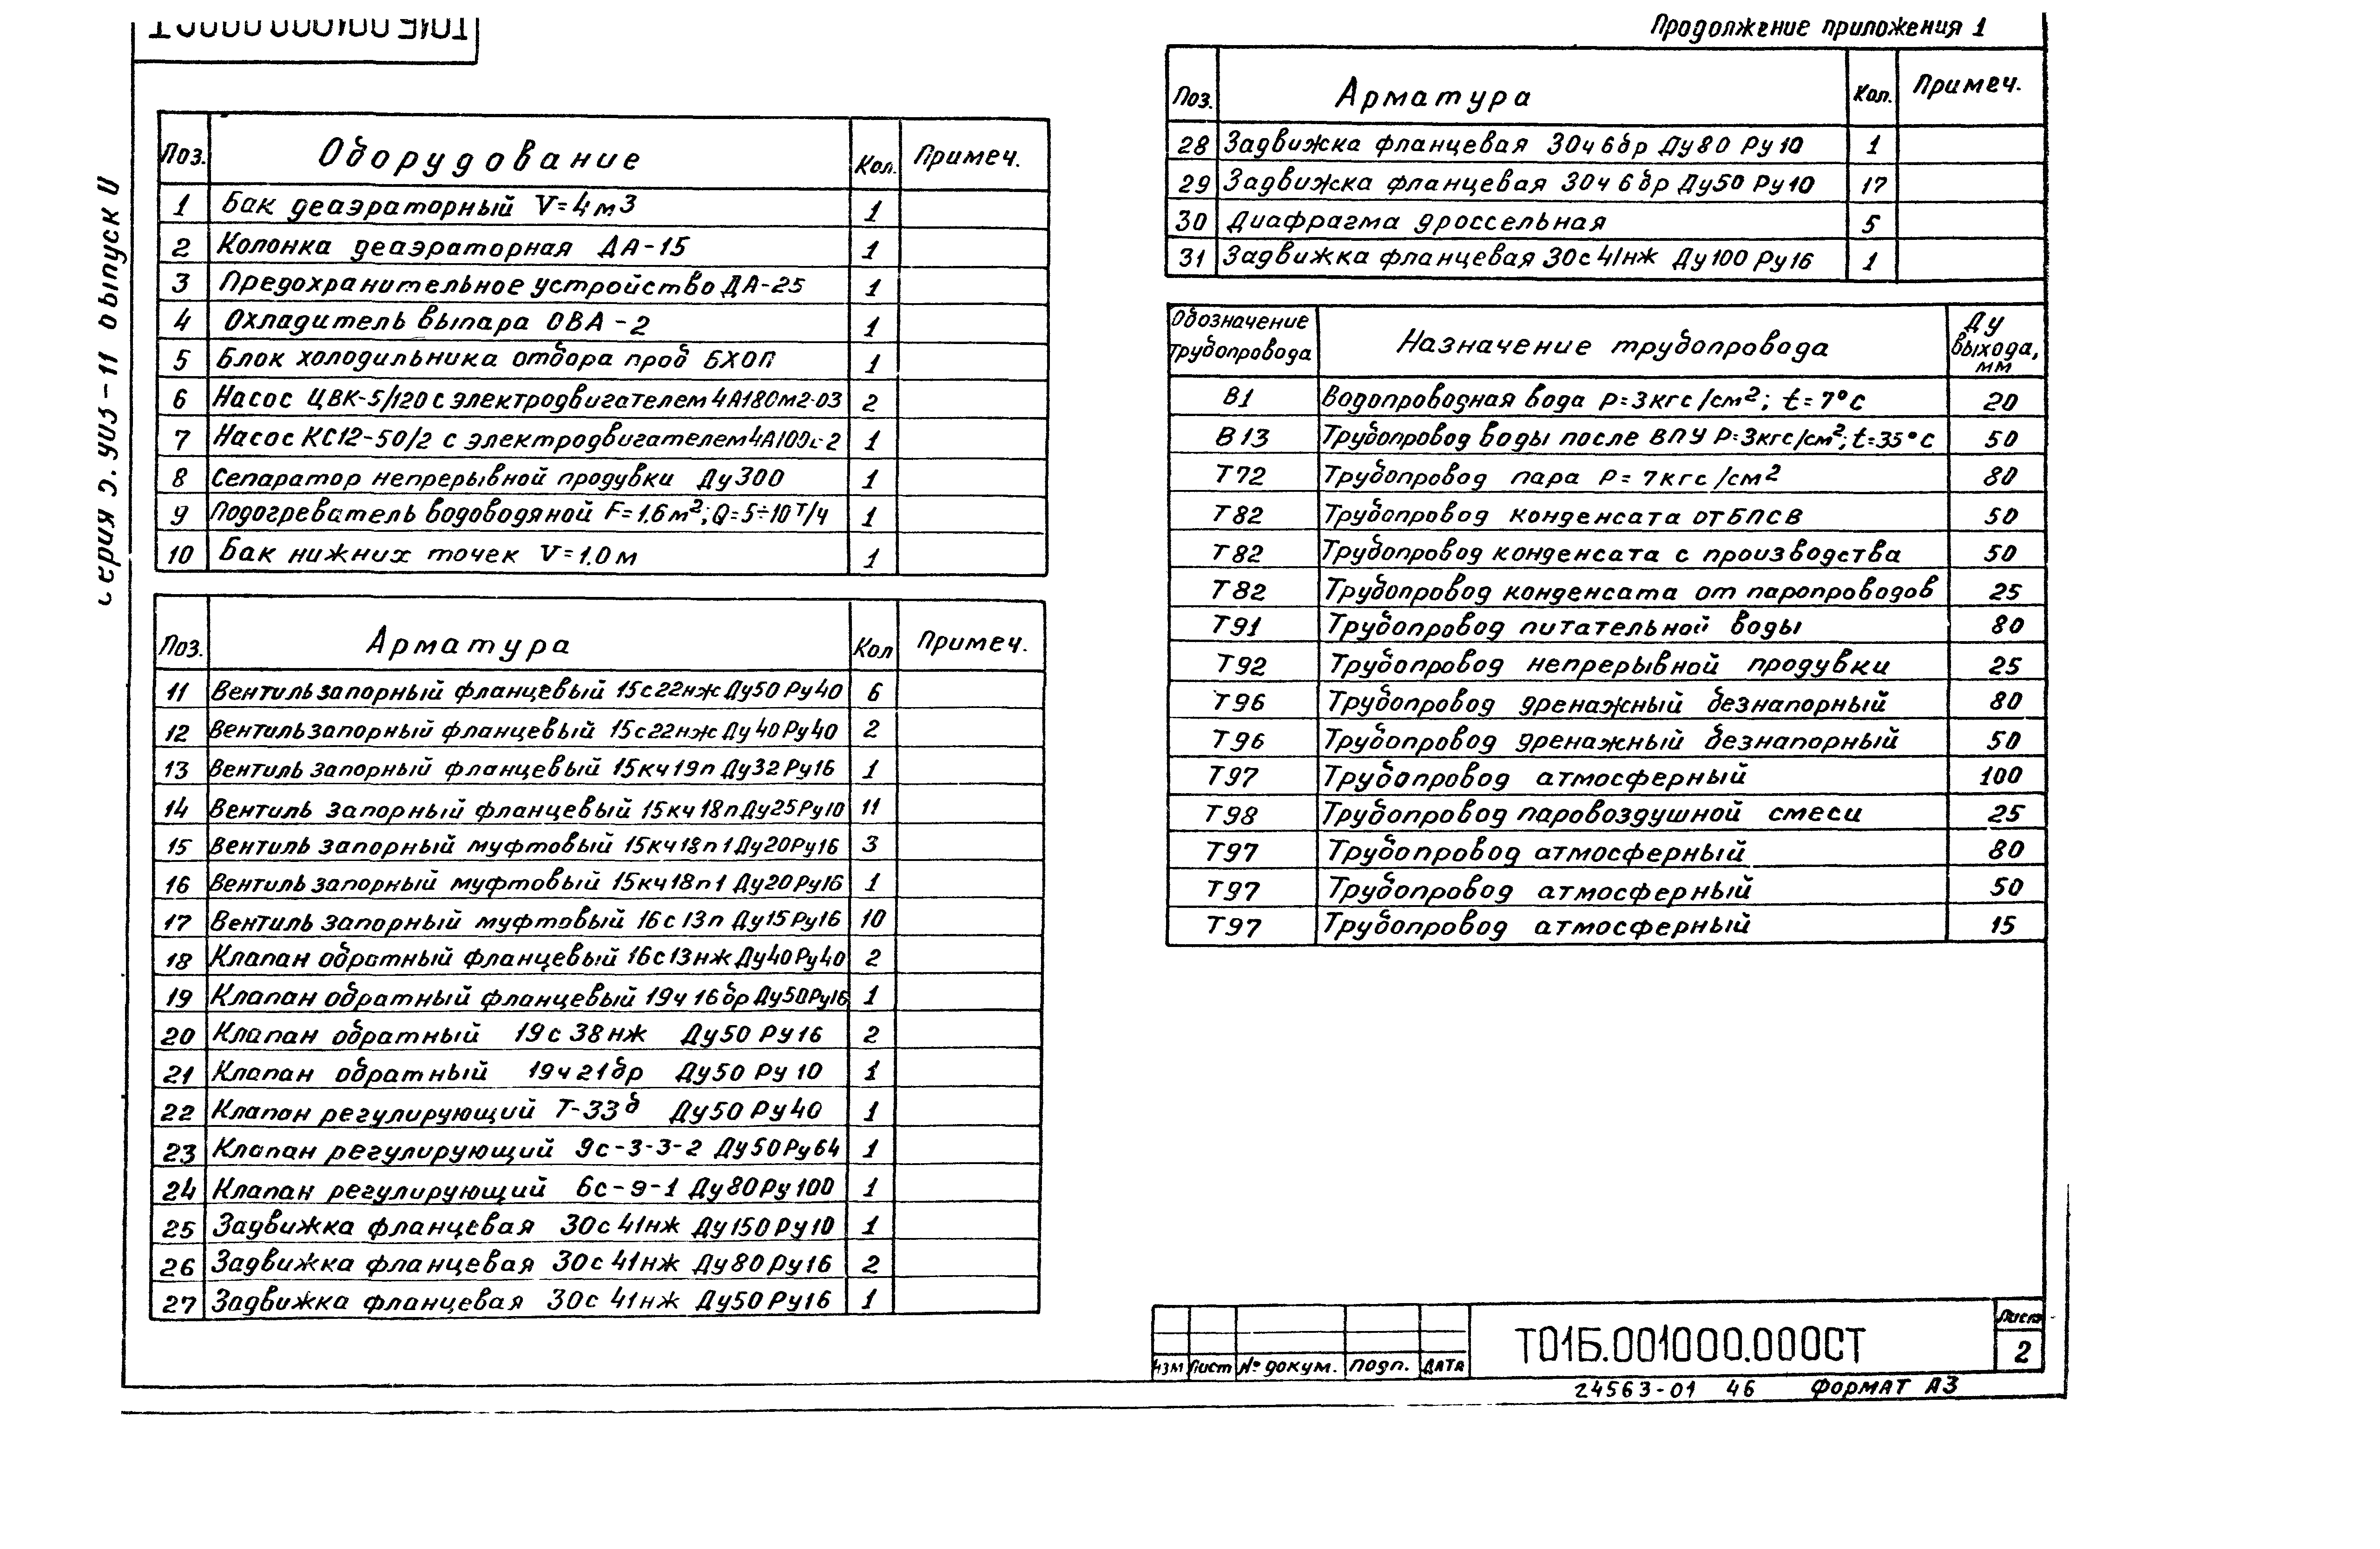 Продолжение приложения 1
Поз. Оборудование Кол. Примеч.
1 Бак деаэраторный V=4м3 1
2 Колонка деаэраторная ДА-15 1
3 Предохранительное устройство ДА-25 1
4 Охладитель выпара ОВА-2 1
5 Блок холодильника отбора проб БХОП 1
6 Насос ЦВК-5/120 с электродвигателем 4А180м2-03 2
7 Насос КС12-50/2 с электродвигателем 1
8 Сепаратор непрерывной продувки Ду300 1
9 Подогреватель водоводяной F=1.6м²; Q=5÷10 т/ч 1
10 Бак нижних точек V=1.0м 1
Поз. Арматура Кол Примеч.
11 Вентиль запорный фланцевый 15с22нж Ду50 Ру40 6
12 Вентиль запорный фланцевый 15с22нж Ду40 Ру40 2
13 Вентиль запорный фланцевый 15кч19п Ду32 Ру16 1
14 Вентиль запорный фланцевый 15кч18п Ду25 Ру10 11
15 Вентиль запорный муфтовый 15кч18п1 Ду20 Ру16 3
16 Вентиль запорный муфтовый 15кч18п1 Ду20 Ру16 1
17 Вентиль запорный муфтовый 16с13п Ду15 Ру16 10
18 Клапан обратный фланцевый 16с13нж Ду40 Ру40 2
19 Клапан обратный фланцевый 19ч16бр Ду50 Ру16 1
20 Клапан обратный 19с38нж Ду50 Ру16 2
21 Клапан обратный 19ч21бр Ду50 Ру10 1
22 Клапан регулирующий Т-33б Ду50 Ру40 1
23 Клапан регулирующий 9с-3-3-2 Ду50 Ру64 1
24 Клапан регулирующий 6с-9-1 Ду80 Ру100 1
25 Задвижка фланцевая 30с41нж Ду150 Ру10 1
26 Задвижка фланцевая 30с41нж Ду80 Ру16 2
27 Задвижка фланцевая 30с41нж Ду50 Ру16 1
Поз. Арматура Кол. Примеч.
28 Задвижка фланцевая 30ч6бр Ду80 Ру10 1
29 Задвижка фланцевая 30ч6бр Ду50 Ру10 17
30 Диафрагма дроссельная 5
31 Задвижка фланцевая 30с41нж Ду100 Ру16 1
Обозначение трубопровода Назначение трубопровода Ду выхода, мм
В1 Водопроводная вода Р=3кгс/см²; t=7°С 20
В13 Трубопровод воды после ВПУ Р=3кгс/см²; t=35°С 50
Т72 Трубопровод пара Р=7кгс/см² 80
Т82 Трубопровод конденсата от БПСВ 50
Т82 Трубопровод конденсата с производства 50
Т82 Трубопровод конденсата от паропроводов 25
Т91 Трубопровод питательной воды 80
Т92 Трубопровод непрерывной продувки 25
Т96 Трубопровод дренажный безнапорный 80
Т96 Трубопровод дренажный безнапорный 50
Т97 Трубопровод атмосферный 100
Т98 Трубопровод паровоздушной смеси 25
Т97 Трубопровод атмосферный 80
Т97 Трубопровод атмосферный 50
Т97 Трубопровод атмосферный 15
Изм Лист № докум. Подп. Дата
Т01Б.001000.000СТ
Лист
2
24563-01 46 Формат А3